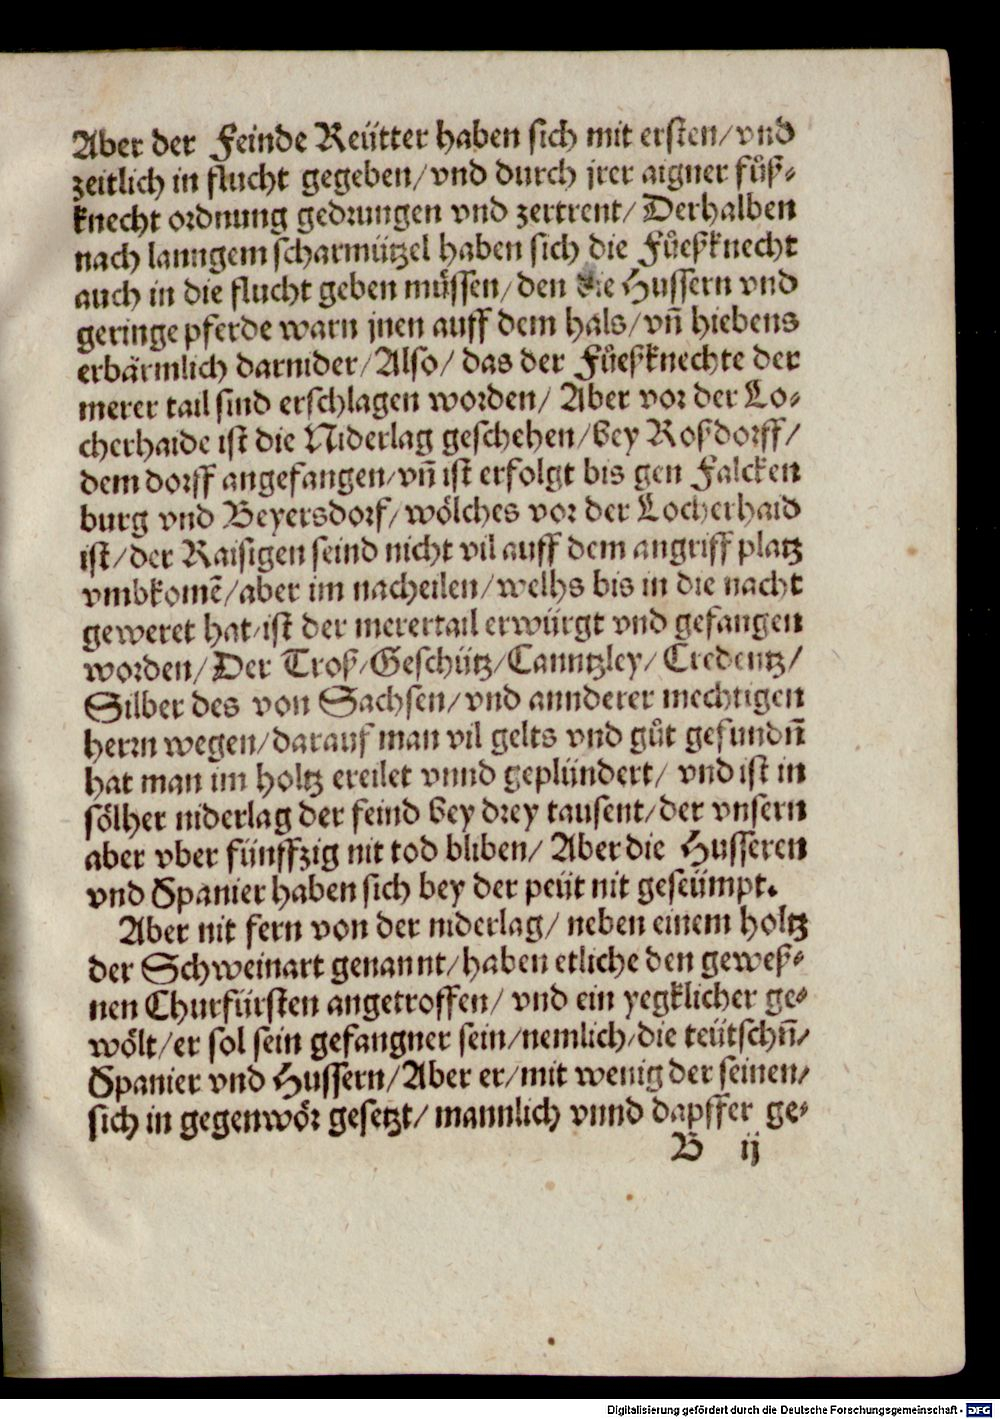 Aber der Feinde Reütter haben sich mit ersten/ vnd
zeitlich in flucht gegeben/ vnd durch jrer aigner fůß⸗
knecht ordnung gedrungen vnd zertrent/ Derhalben
nach lanngem scharmützel haben sich die Fůeßknecht
auch in die flucht geben můssen/ den die Hussern vnd
geringe pferde warn jnen auff dem hals/ vñ hiebens
erbärmlich darnider/ Also/ das der Fůeßknechte der
merer tail sind erschlagen worden/ Aber vor der Lo⸗
cherhaide ist die Niderlag geschehen/ bey Roßdorff/
dem dorff angefangen/ vñ ist erfolgt bis gen Falcken
burg vnd Beyersdorf/ wölches vor der Locherhaid
ist/ der Raisigen seind nicht vil auff dem angriff platz
vmbkomẽ/ aber im nacheilen/ welhs bis in die nacht
geweret hat/ ist der merertail erwürgt vnd gefangen
worden/ Der Troß/ Geschütz/ Canntzley/ Credentz/
Silber des von Sachsen/ vnd annderer mechtigen
herrn wegen/ darauf man vil gelts vnd gůt gefundñ
hat man im holtz ereilet vnnd geplündert/ vnd ist in
sölher niderlag der feind bey drey tausent/ der vnsern
aber vber fünffzig nit tod bliben/ Aber die Husseren
vnd Spanier haben sich bey der peüt nit geseümpt.
Aber nit fern von der niderlag/ neben einem holtz
der Schweinart genannt/ haben etliche den geweß⸗
nen Churfürsten angetroffen/ vnd ein yegklicher ge⸗
wölt/ er sol sein gefangner sein/ nemlich/ die teütschñ/
Spanier vnd Hussern/ Aber er/ mit wenig der seinen/
sich in gegenwör gesetzt/ mannlich vnnd dapffer ge⸗
B ij
Digitalisierung gefördert durch die Deutsche Forschungsgemeinschaft - DFG